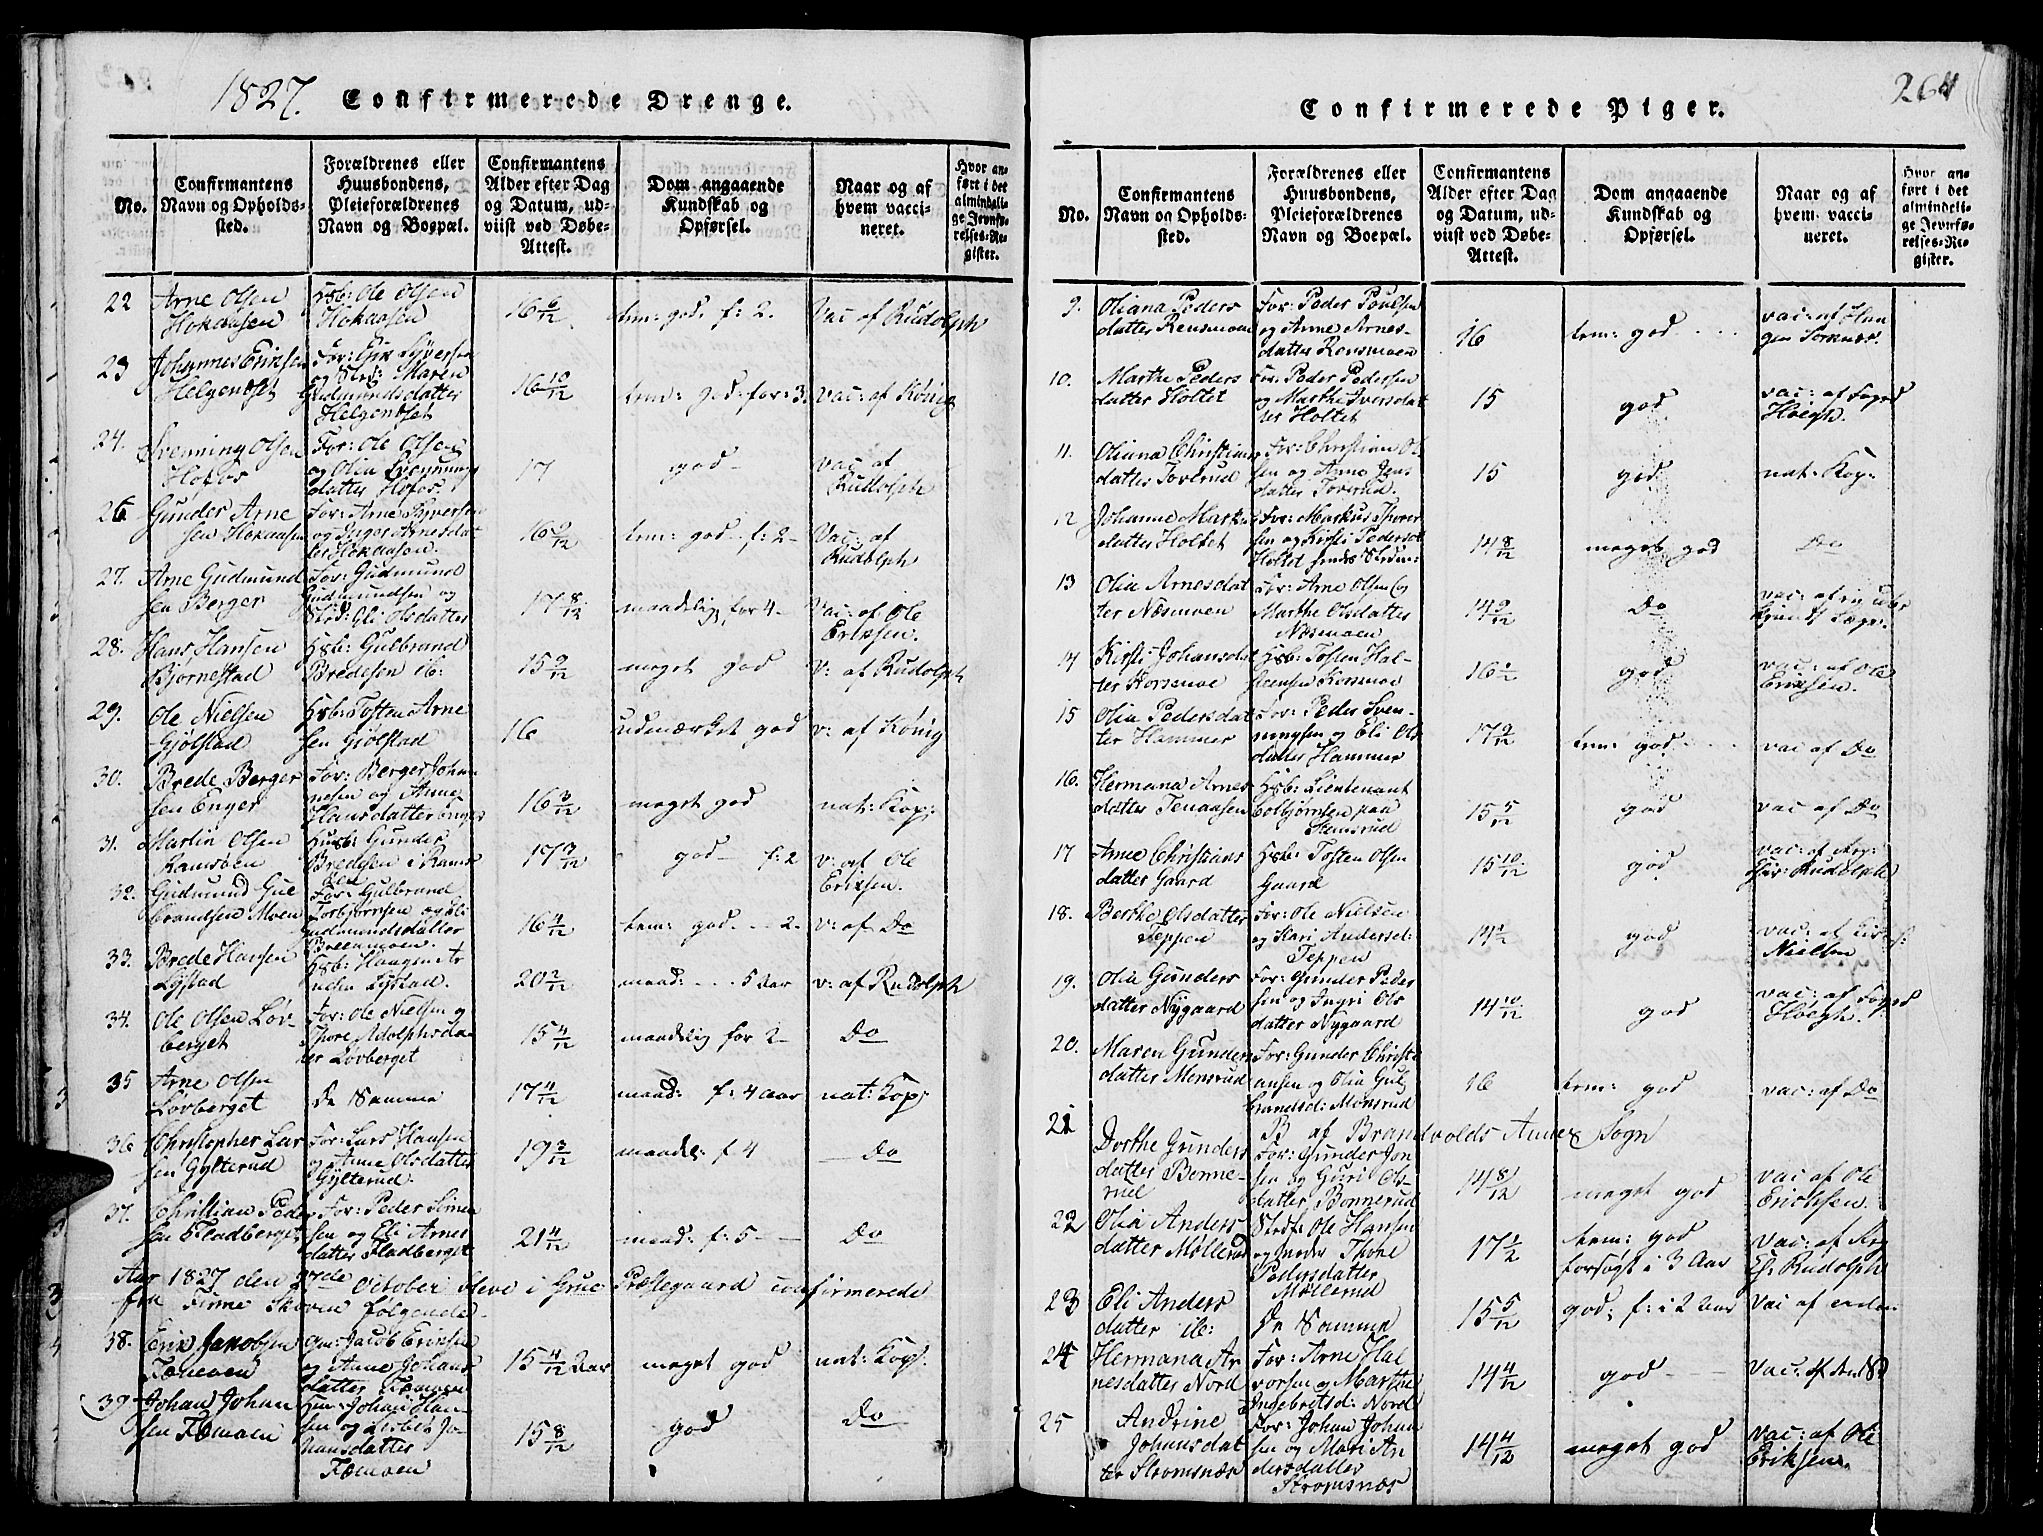 1827. Confirmerede Drenge.
No.
Confirmantens
Navn og Opholds-
sted.
Forældrenes eller
Huusbondens,
Pleieforældrenes
Navn og Boepæl.
Confirmantens
Alder efter Dag
og Datum, ud-
viist ved Døbe-
Attest.
Dom angaaende
Kundskab og
Opførsel.
Naar og af
hvem vacci-
neret.
Hvor an-
ført i det
almindeli-
ge Jevnfø-
relses-Re-
gister.
22 Arne Olsen
Hokaasen
Hsb: Ole Olsen
Hokaasen
16 6/12
tem: god. f: 2.
Vac af Rudolph
23 Johannes Eriksen
Helgenset
For: Erik Syversen
og Maren
Gudmundsdatter
Helgenset
16 10/12
tem: god: for: 3.
vac: af König
24. Svenning Olsen
Hofos
For: Ole Olsen
og Olia Svennings
datter Hofos.
17
god
vac af
Rudolph
26 Gunder Arne
sen Hokaasen
For: Arne Syversen
og Inger Arnesdat
ter Hokaasen.
16 9/12
tem: god f: 2
Vac: af
Rudolph
27. Arne Gudmund
sen Berger
For: Gudmund
Gudmundsen og
Eli Olsdatter
17 8/12
maadelig for 4
Vac: af Ole
Eriksen.
28. Hans Hansen
Bjørnestad
Hsb: Gulbrand
Bredesen ib:
15 9/12
meget god
v: af Rudolph
29. Ole Nielsen
Gjølstad
Hsb: Tosten Arne
sen Gjölstad
16
udmærket god
v: af König
30. Brede Berger
sen Enger
For: Berger Johan
nesen og Anne
Hansdatter Enger
16 3/12
meget god
nat: Kop:
31. Martin Olsen
Ramsøen
Husb: Gunder
Bredesen i Rams
öen
17 3/12
god f: 2
v: af Ole
Eriksen.
32. Gudmund Gul
brandsen Moen
For: Gulbrand
Torbjørnsen og Eli
Gudmundsdatter
Breenmoen.
16 4/12
tem: god. 2.
v: af Do
33. Brede Hansen
Lystad
Hsb: Haagen Ar
nesen Lystad.
20 2/12
maad: 5 Aar
v: af Rudolph
34. Ole Olsen Løv-
berget
For: Ole Nielsen og
Thore Adolphsdat
ter Løvberget
15 4/12
maadelig for 2
Do
35 Arne Olsen
Løvberget
De Samme
17 4/12
maad: f: 4 aar
nat: Kop:
36 Christopher Lar
sen Gylterud
For: Lars Hansen
og Anne Olsdatter
Gylterud.
19 3/12
maadel: f 4
Do
37. Christian Peder
sen Fladberget
For: Peder Simen
sen og Eli Arnes
datter Fladberget
21 4/12
maad: f: 5
Do
Aar 1827 den 7de October bleve i Grue Præstegaard confirmerede
fra Finne Skoven følgende
38. Erik Jacobsen
Fæmoen
For: Jacob Eriksen
og Anne Johans
datter Fæmoen
15 4/12 Aar
meget god
nat: Kop:
39 Johan Johan
sen Fæmoen
For: Johan Han
sen og Lisbet Jo
hansdatter
Fæmoen
15 8/12
god
Do
Confirmerede Piger.
264
No.
Confirmantens
Navn og Opholds-
sted.
Forældrenes eller
Huusbondens,
Pleieforældrenes
Navn og Boepæl.
Confirmantens
Alder efter Dag
og Datum, ud-
viist ved Døbe-
Attest.
Dom angaaende
Kundskab og
Opførsel.
Naar og af
hvem vacci-
neret.
Hvor an-
ført i det
almindeli-
ge Jevnfø-
relses-Re-
gister.
9. Oliana Peders
datter Rensmoen
For: Peder Poulsen
og Anne Arnes-
datter Rensmoen
16
tem: god
vac: af Hau
gen Sorknæs.
10. Marthe Peders
datter Holtet
For: Peder Pedersen
og Marthe Iversdat
ter Holtet
15
god
vac: af Foged
Høegh.
11. Oliana Christians
datter Toverud
For: Christian Ol
sen og Anne Jens
datter Toverud.
15
god
nat: Kop:
12 Johanne Markus
datter Holtet
For: Markus Thorer
sen og Kirsti Pedersdat
Holtet
14 8/12
meget god
Do
13 Olia Arnesdat
ter Næsmoen
For: Arne Olsen og
Marthe Olsdatter
Næsmoen
14 9/12
Do
14 Kirsti Johansdat
ter Korsmoe
Hsb: Tosten Hal-
steensen Korsmoe
16 1/2
god
vac: af Ole
Eriksen.
15 Olia Pedersdat
ter Hammer
For: Peder Sven-
ningsen og Eli Ols
datter Hammer
17 9/12
tem: god
vac af Do
16. Hermana Arnes
datter Tenaasen
Hsb: Lieutenant
Colbjørnsen paa
Stemsrud
15 5/12
god
vac af Do
17 Anne Christians
datter Gaard
Hsb: Tosten Olsen
Gaard
15 10/12
god
vac: af Reg:
Chir: Rudolph
18. Berthe Olsdatter
Teppen
For: Ole Nielsen
og Kari Andersd:
Teppen
14 1/2
god
Nielsen
19. Olia Gunders
datter Nygaard
For: Gunder Peder
sen og Ingri Ols
datter Nygaard
14 10/12
god
vac: af Foged
Høegh.
20. Maren Gunders
datter Monsrud
For: Gunder Christi
ansen og Olia Gul
brandsd: Monsrud
16
tem: god
vac: af Do
B af Brandvolds Annex Sogn
21 Dorthe Gunders
datter Bonne-
rud
For: Gunder Jon
sen og Guri Ols-
datter Bonnerud
14 8/12
meget god
vac af Ole
Erichsen.
22 Olia Anders
datter Møllerud
Stedf: Ole Hansen
og moder Thore
Pedersdatter
Møllerud
17 1/2
tem: god
forsøgt i 3 Aar
Vac: af Reg
Ch: Rudolph
23 Eli Anders
datter ib:
De Samme
15 5/12
god; f: i 2 Aar
Vac af
24 Hermana Ar
nesdatter Nord
For: Arne Hal
vorsen og Marthe
Ingebretsd: Nord
14 4/12
god
Vac: af
25 Andrine
Johansdat
ter Stromsnæs
For: Johan Johan
sen og Mari An
dersdatter
Stromsnæs
14 4/12
meget god
vac: af Ole
Eriksen.